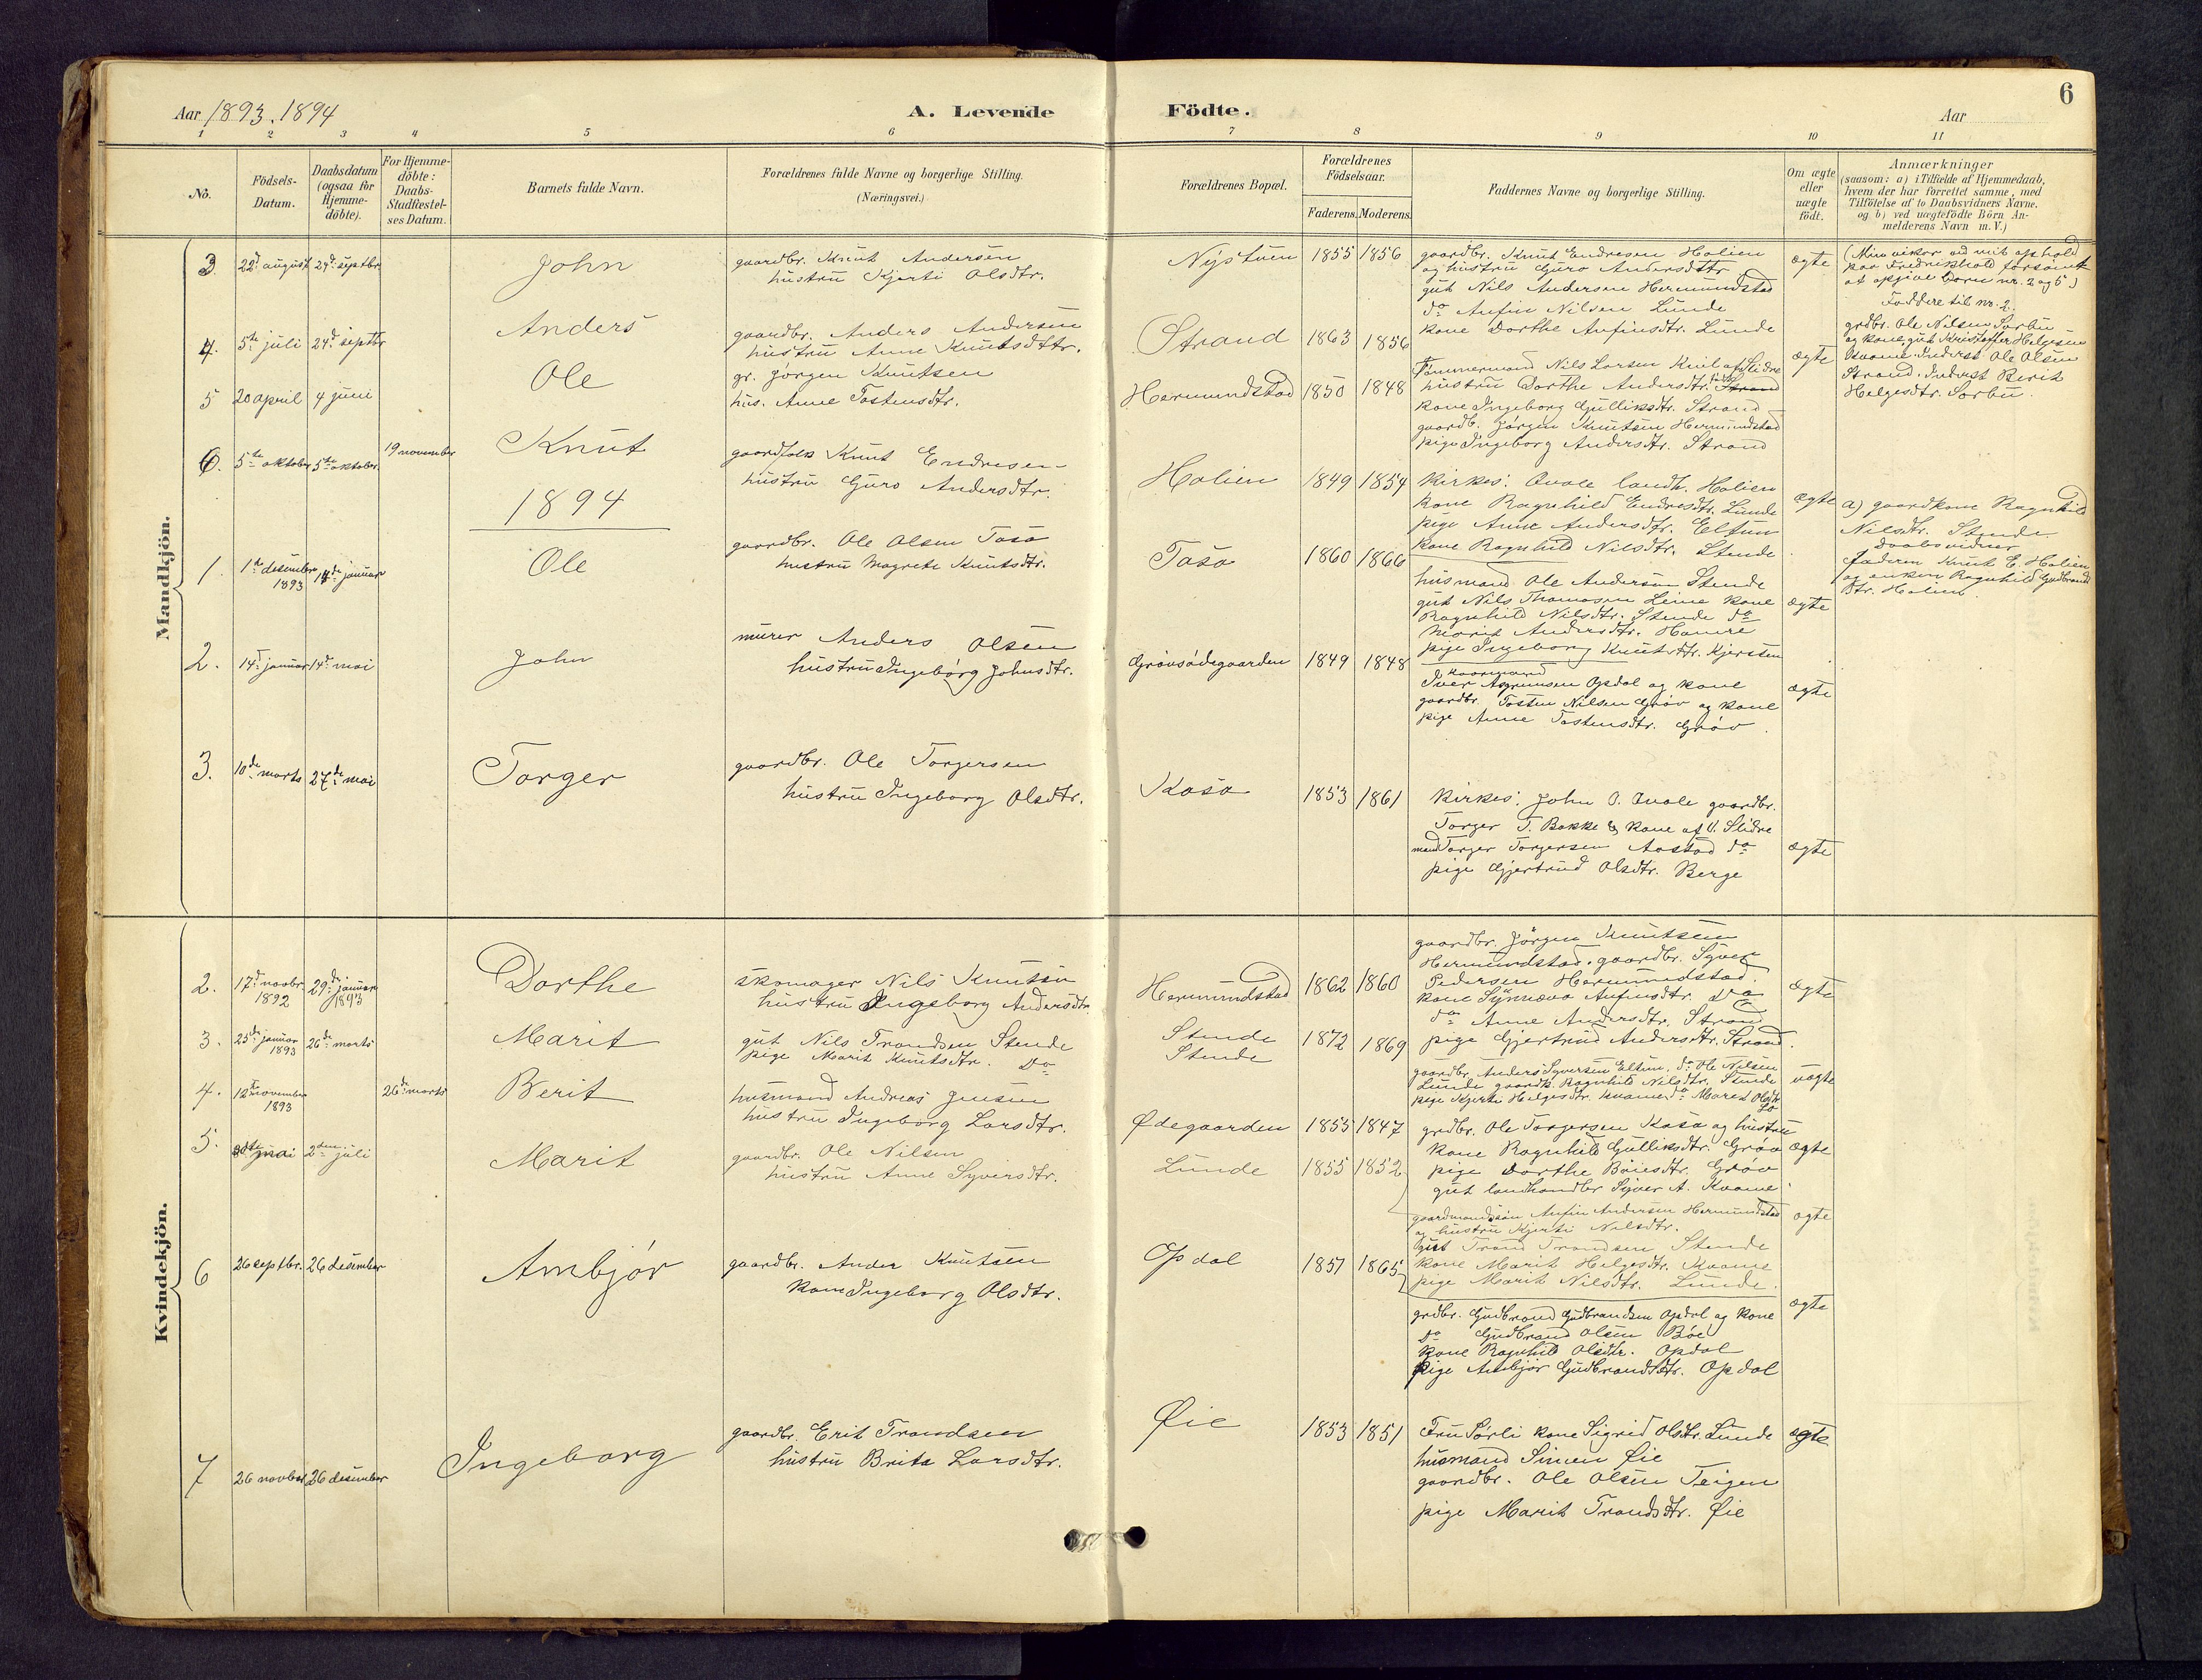 Aar 1893.1894
A. Levende Födte.
Aar
6
1 2 3 4 5 6 7 8 9 10 11
No.
Födsels-Datum.
Daabsdatum (ogsaa for Hjemme-döbte).
For Hjemme-döbte: Daabs-Stadfæstel-ses Datum.
Barnets fulde Navn.
Forældrenes fulde Navne og borgerlige Stilling.
(Næringsvei.)
Forældrenes Bopæl.
Forældrenes Födselsaar.
Faderens. Moderens.
Faddernes Navne og borgerlige Stilling.
Om ægte eller uægte födt.
Anmærkninger
(saasom: a) i Tilfælde af Hjemmedaab,
hvem der har forrettet samme, med
Tilföielse af to Daabsvidners Navne,
og b) ved uægtefödte Börn An-
melderens Navn m.V.)
Mandkjön.
3 22d august 24d septbr. John
gaardbr. Knut Andersen
hustru Kjersti Olsdtr.
Nystuen 1855 1856
gaardbr. Knut Endresen Holien
og hustru Guro Andersdttr.
gut Nils Andersen Hermundstad
do Anfin Nilsen Lunde
kone Dorthe Anfinsdtr. Lunde
ægte
(Min vikar ved mit ophold
paa Fredrikshald forsömt
at opgive Barn nr. 2 og 5)
Faddere til nr. 2.
grdbr. Ole Nilsen Sorbu
og kone, gut Kristoffer Helgesen
Kvame. Inderst Ole Olsen
Strand. Inderst Berit
Helgesdtr. Sorbu.
4. 5te juli 24d septbr Anders
gaardbr. Anders Andersen
hustru Anne Knutsdttr.
Strand 1863 1856
Tömmermand Nils Larsen Kvil af Slidre
hustru Dorthe Andersdtr.
kone Ingeborg Gulliksdtr. Strand
gaardb. Jörgen Knutsen Hermundstad
pige Ingeborg Andersdtr. Strand
ægte
5 20 april 4 juni Ole
gr. Jörgen Knutsen
hus. Anne Tostensdtr.
Hermundstad 1850 1848
6. 5te oktober 5te oktober 19 november Knut
gaardfolk Knut Endresen
hustru Guro Andersdtr.
Holien 1849 1854
Kirkes. Qvale landh. Holien
kone Ragnhild Endresdtr. Lunde
pige Anne Andersdtr. Eltun
kone Ragnhild Nilsdtr. Stende
ægte
a) gaardkone Ragnhild
Nilsdtr. Stende
Daabsvidner
faderen Knut E. Holien
og enken Ragnhild Gudbrands
dtr. Holien.
1894
1. 1te desember 1893 14de januar Ole
gaardbr. Ole Olsen Tasa
hustru Magrete Knutsdtr.
Tasa 1860 1866
husmand Ole Andersen Stende
gut Nils Thomasen Leine kone
Ragnhild Nilsdtr. Stende do
Marit Andersdtr. Hamre
pige Ingeborg Knutsdtr. Kjersten
ægte
2. 14d januar 14d mai John
murer Anders Olsen
hustru Ingebörg Johnsdtr.
Grövsödegaarden 1849 1848
Iver Asgrimsen Opdal og kone
gaardbr. Tosten Nilsen Gröv og kone
pige Anne Tostensdtr. Gröv.
ægte
3. 10de marts 27de mai Torger
gaardbr. Ole Torgersen
hustru Ingeborg Olsdtr.
Kasa 1853 1861
Kirkes. John O. Qvale gaardbr.
Torger T. Bakke og kone af V. Slidre
Torger Torgersen Aastad do
pige Gjertrud Olsdtr. Berge
ægte
Kvindekjön.
2. 17d novbr. 1892 29d januar 1893 Dorthe
skomager Nils Knutsen
hustru Ingeborg Andersdtr.
Hermundstad 1862 1860
gaardbr. Jörgen Knutsen
Hermundstad. gaardbr. Syver
Pedersen Hermundstad.
kone Synnöva Anfinsdtr. do
do Anne Andersdtr. Strand
pige Gjertrud Andersdtr. Strand.
ægte
3. 25de januar 1893 26de marts Marit
gut Nils Trondsen Stende
pige Marit Knutsdtr. Do
Stende
Stende
1872 1869
gaardbr. Anders Syversen Eltun, do Ole Nilsen
Lunde gaardk. Ragnhild Nilsdtr. Stende
pige Kjersti Helgesdtr. Kvame do Marit Olsdtr.
uægte
4. 12te november 1893 26de marts Berit
husmand Andreas Jensen
hustru Ingeborg Larsdtr.
Ødegaarden 1853 1847
grdbr. Ole Torgersen Kasa og hustru
kone Ragnhild Gulliksdtr. Gröv
pige Dorthe Böiesdtr. Gröv
gut landhandler Syver A. Kvame
ægte
5. mai 2den juli Marit
gaardbr. Ole Nilsen
hustru Anne Syversdtr.
Lunde 1855 1852
gaardmandssön Anfin Andersen Hermundstad
og hustru Kjersti Nilsdtr.
gut Trond Trondsen Stende
kone Marit Helgesdtr. Kvame
pige Marit Nilsdtr. Lunde.
ægte
6 26 septbr. 26 desember Ambjör
gaardbr. Ander Knutsen
kone Ingeborg Olsdtr.
Opdal 1857 1865
grdbr. Gudbrand Gudbrandsen Opdal og kone
do Gudbrand Olsen Böe
kone Ragnhild Olsdtr. Opdal
pige Ambjör Gudbrandsdtr. Opdal
ægte
7 26 novber 26 desember Ingeborg
gaardbr. Erik Trondsen
hustru Brita Larsdtr.
Øie 1853 1851
Fru Sörli kone Sigrid Olsdtr. Lunde
husmand Simen Øie
gaardbr. Ole Olsen Teigen
pige Marit Trondsdtr. Øie
ægte